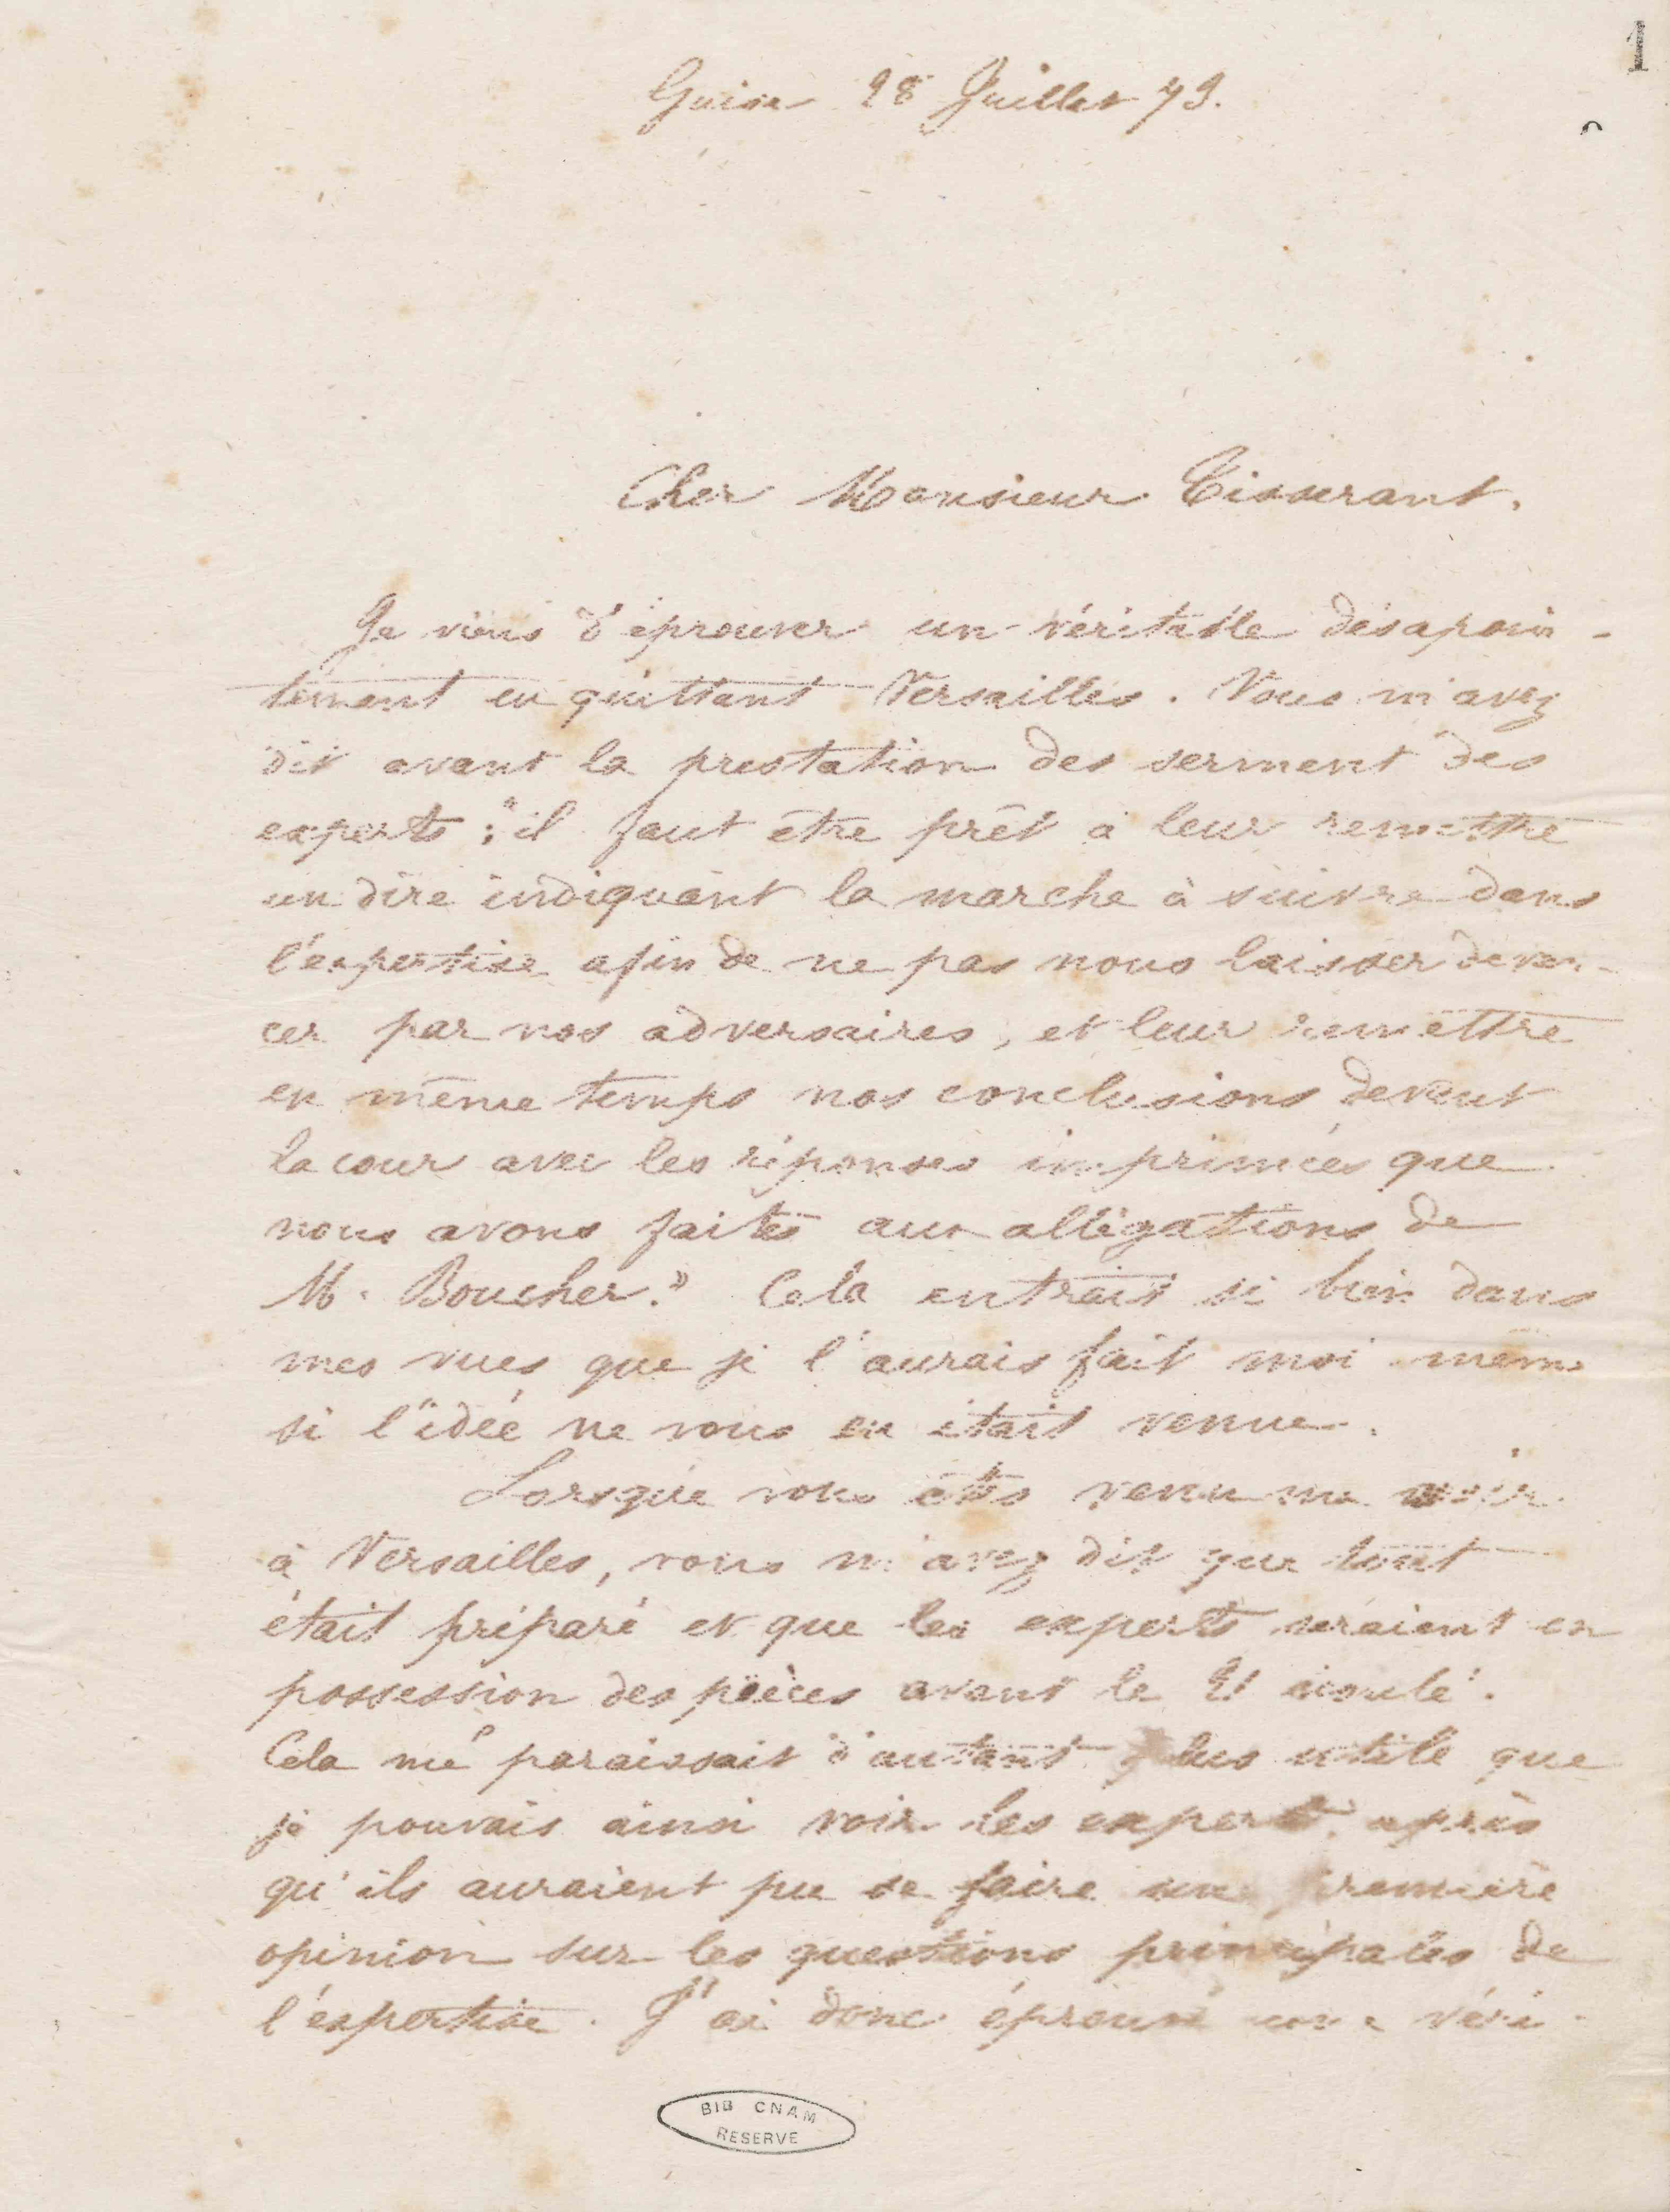 1
Guise 28 Juillet 79.
Cher Monsieur Tisserant,
Je viens d'éprouver un véritable désapoin-
tement en quittant Versailles. Vous m'avez
dit avant la prestation des serment des
experts : "il faut être prêt à leur remettre
un dire indiquant la marche à suivre dans
l'expertise afin de ne pas nous laisser devan-
cer par nos adversaires, et leur remettre
en même temps nos conclusions devant
la cour avec les réponses imprimées que
nous avons faites aux allégations de
M. Boucher." Cela entrait si bien dans
mes vues que je l'aurais fait moi même
si l'idée ne vous en était venue.
Lorsque vous êtes venu me voir
à Versailles, vous m'avez dit que tout
était préparé et que les experts seraient en
possession des pièces avant le 21 écoulé.
Cela me paraissait d'autant plus utile que
je pouvais ainsi voir les experts après
qu'ils auraient pu se faire une première
opinion sur les questions principales de
l'expertise. J'ai donc éprouvé une véri-
BIB CNAM
RESERVE